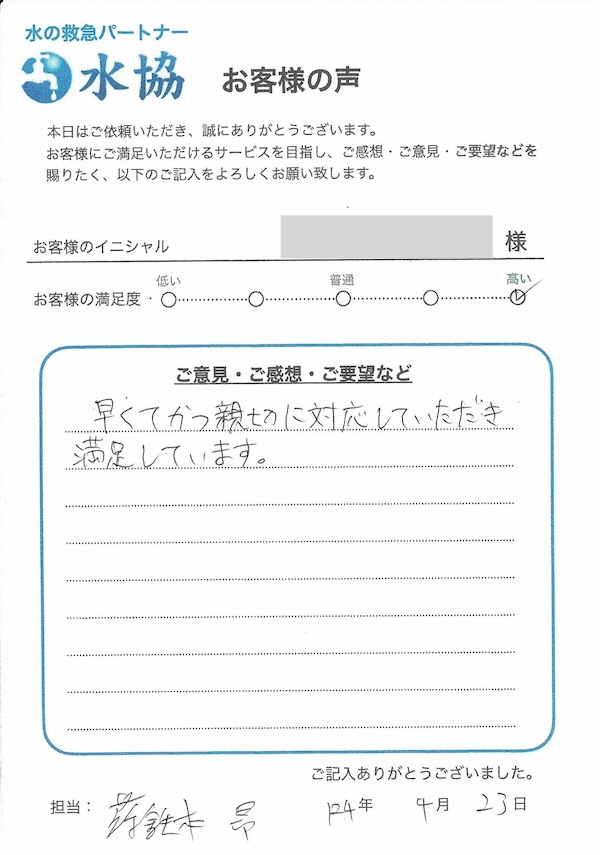 水の救急パートナー
水協 お客様の声
本日はご依頼いただき、誠にありがとうございます。
お客様にご満足いただけるサービスを目指し、ご感想・ご意見・ご要望などを
賜りたく、以下のご記入をよろしくお願い致します。
お客様のイニシャル 様
低い 普通 高い
お客様の満足度
ご意見・ご感想・ご要望など
早くてかつ親切に対応していただき
満足しています。
ご記入ありがとうございました。
担当： 昂 年 4月 23日